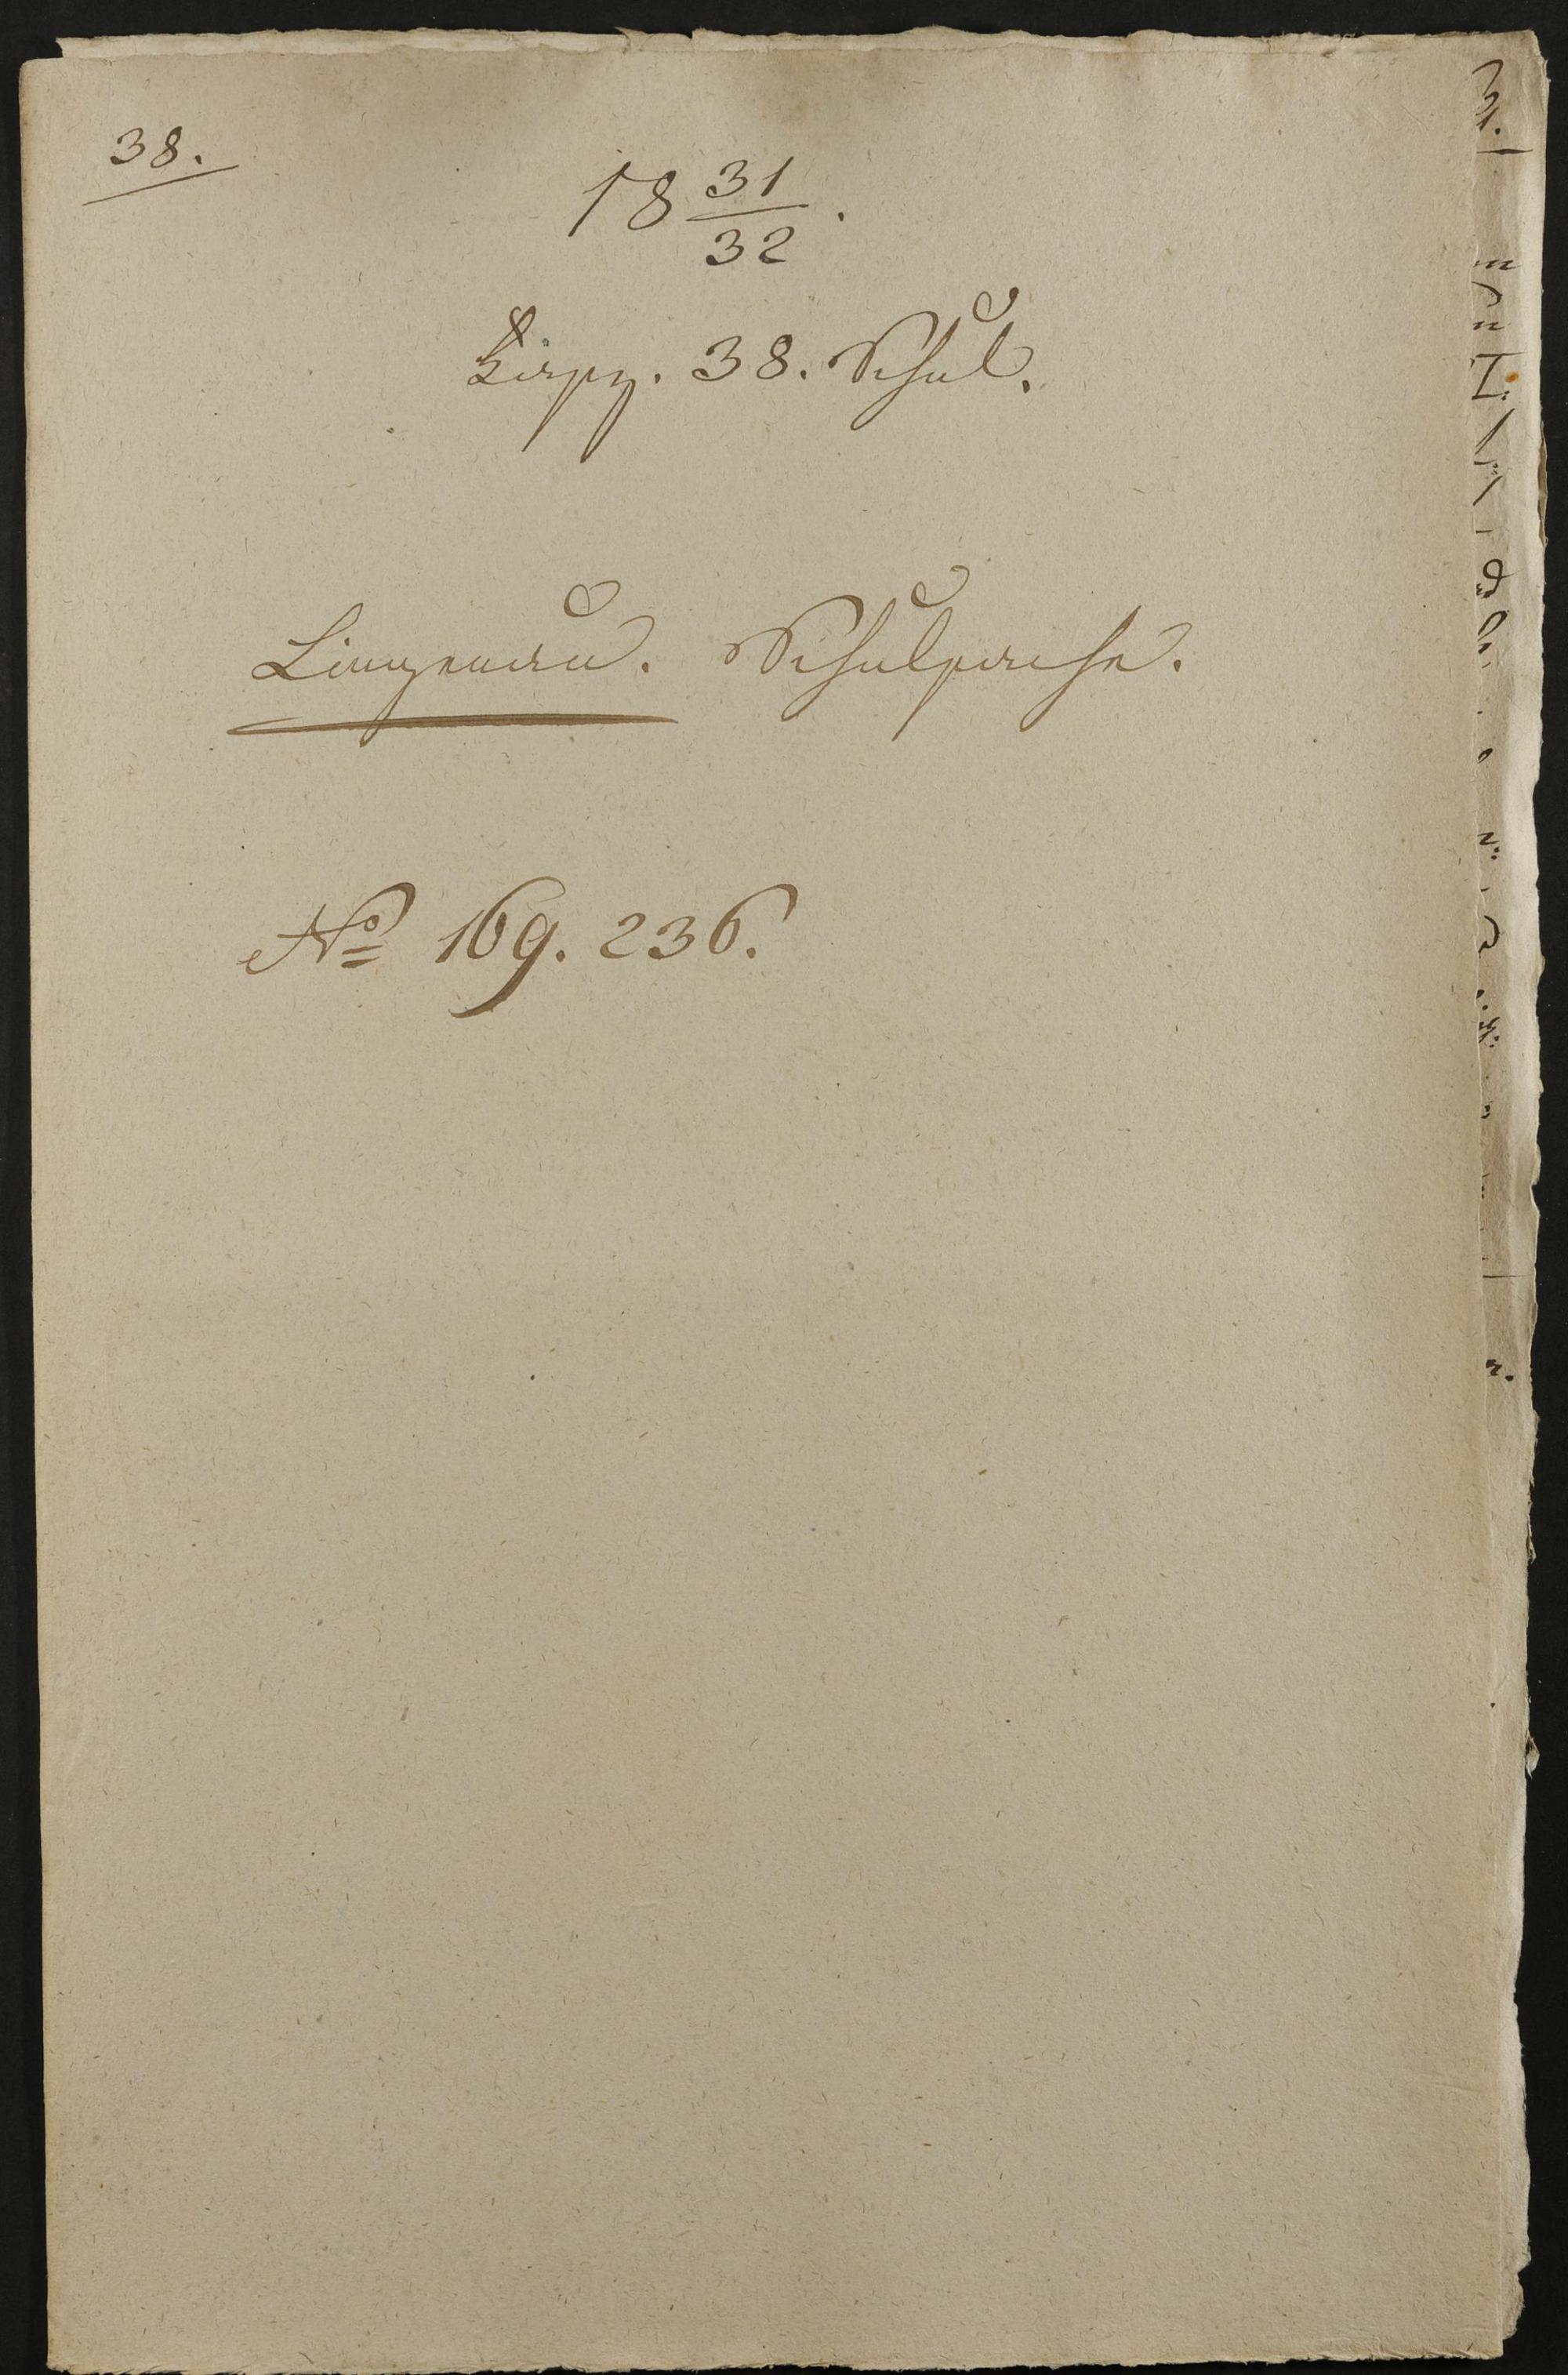 38.
18 31/32.
Fasz. 38. Schul.
Lingenau. Schulsache.
No 169. 236.